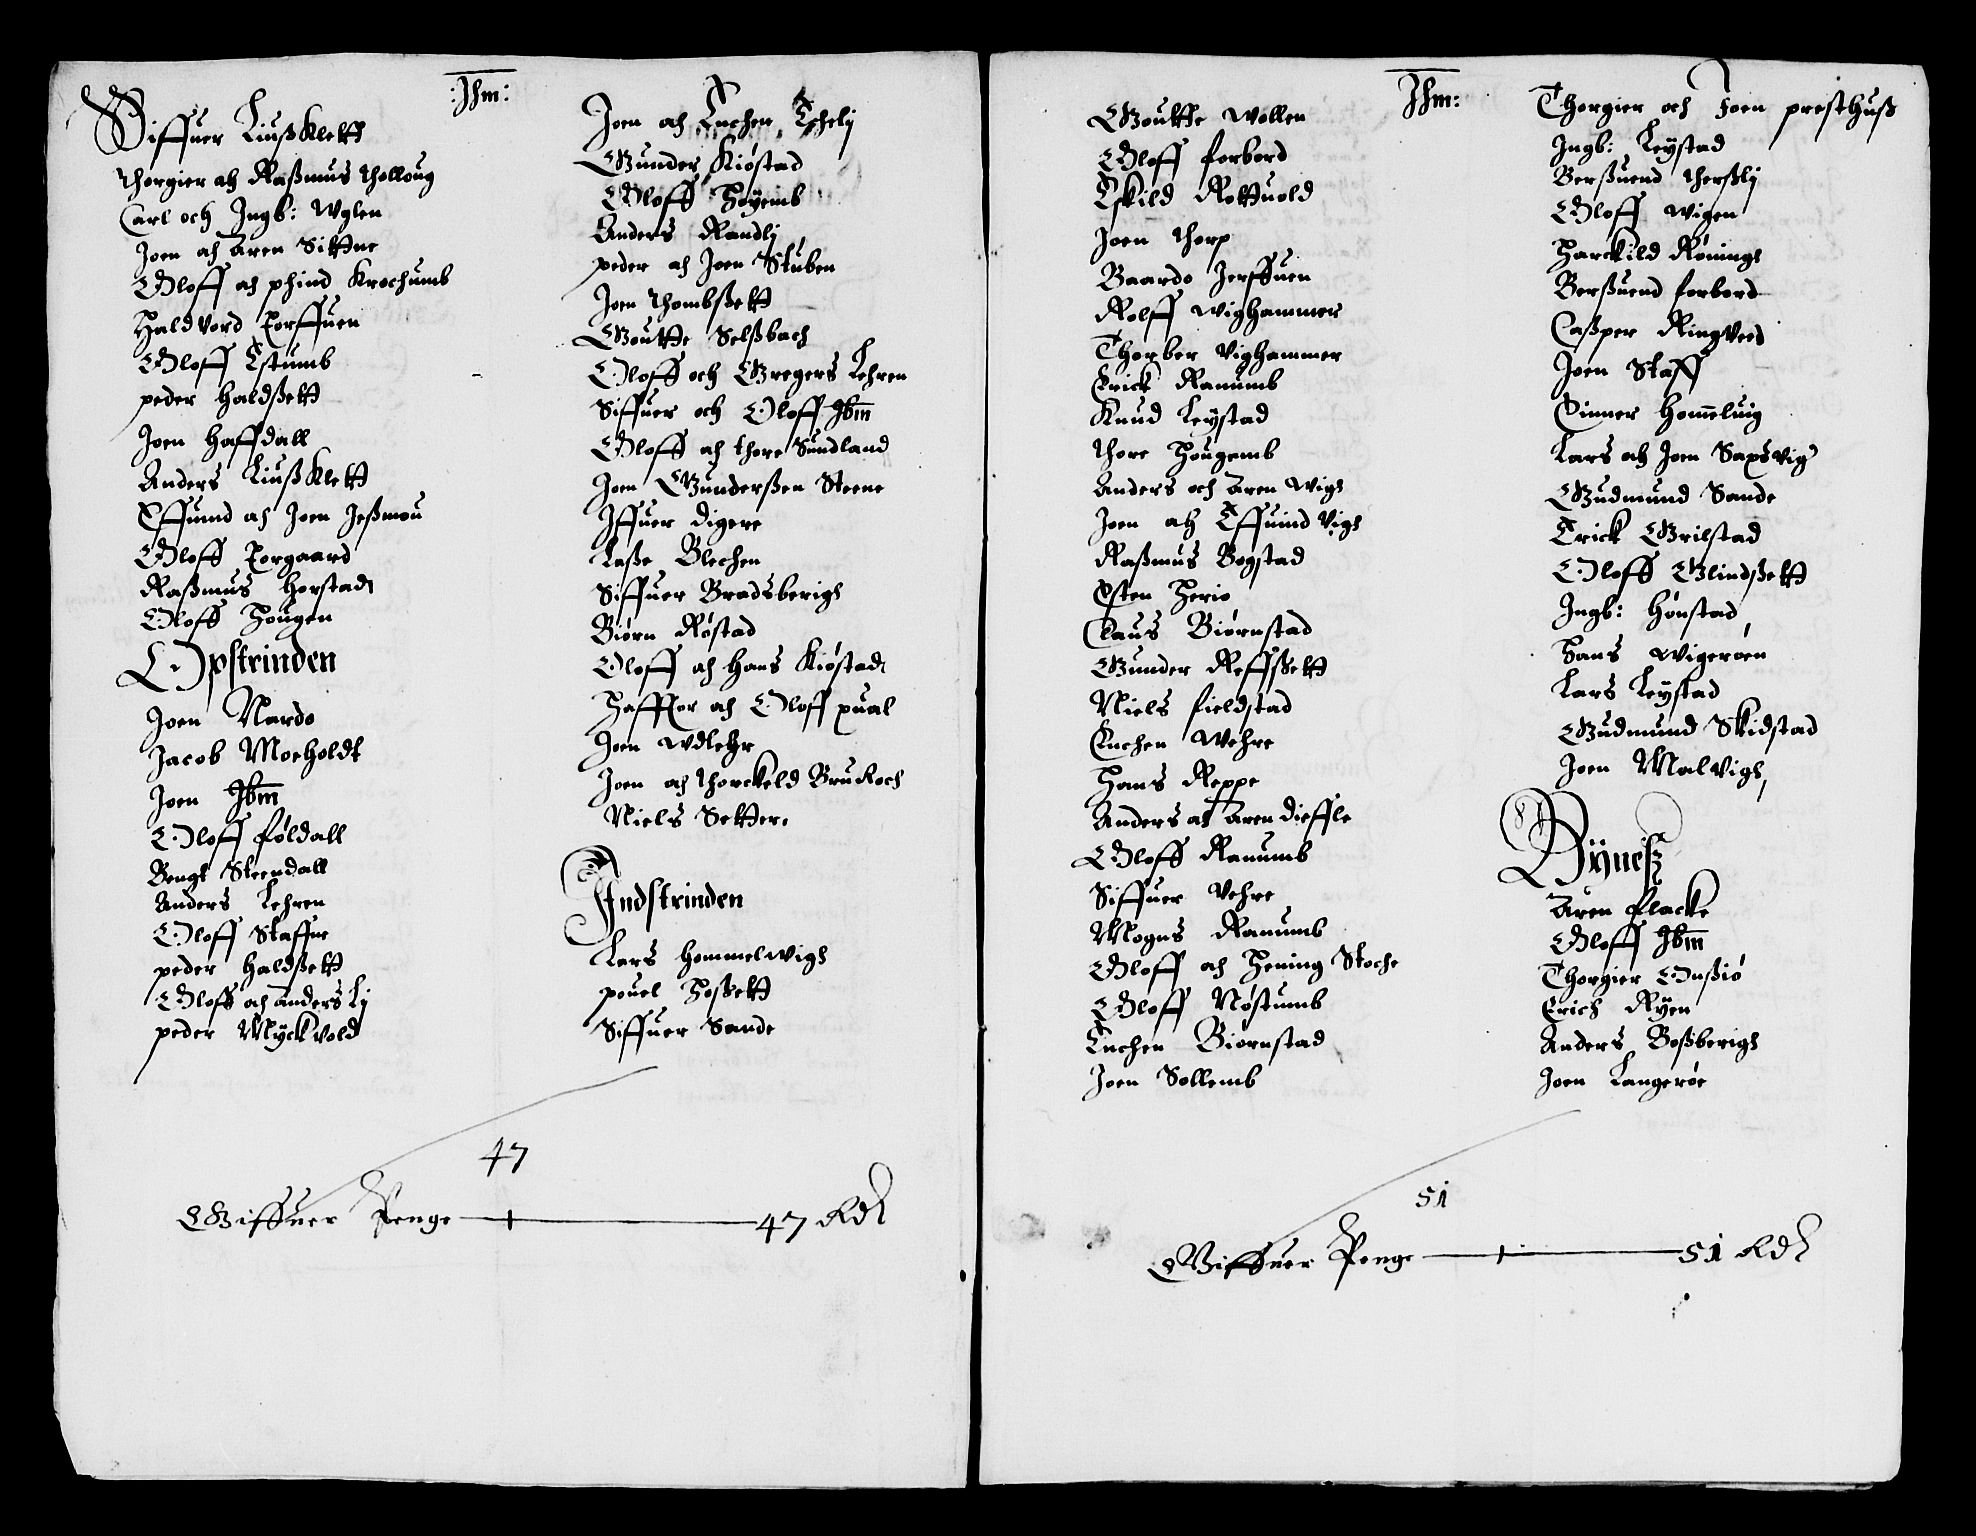 :Jhm:
Siffuer Liußklett
Thorgier och Raßmus Tholloug
Carl och Ingb: Wglen
Joen och Aren Sittne
Oloff och phind Krochumb
Haldvord Torffuen
Oloff Estumb
peder Haldßett
Joen Haffdall
Anders Liußklett
Effuind och Joen Jeßmou
Oloff Torgaard
Raßmus Horstad
Oloff Hougen
Opstrinden
Joen Nardo
Jacob Moeholdt
Joen Ibm
Oloff Føldall
Bengt Steendall
Anders Lehren
Oloff Staffne
peder Haldßett
Oloff och Anders Lj
peder Myckvold
Joen och Enchen Echelj
Gunder Kiøstad
Oloff Høyemb
Anders Randlj
peder och Joen Stuben
Joen Thombßett
Goutte Selßbach
Oloff och Gregers Lehren
Siffuer och Oloff Ibm
Oloff och Thore Sundland
Joen Gunderßen Steene
Iffuer Digere
Laße Blechen
Siffuer Bradsberigh
Biørn Røstad
Oloff och Hans Kiøstad
Hafftor och Oloff pual
Joen Wdlehr
Joen och Thorckeld Bruckoch
Niels Setter.
Indstrinden
Lars Hommelwigh
pouel Hoßett
Siffuer Sande
47
Giffuer Penge 47 Rdl
Jhm:
Goutte Wollen
Oloff Forbord
Eskild Rottuold
Joen Thorp
Baardo Jerffuen
Rolff Wighammer
Thorber Vighammer
Erick Ranumb
Knud Leystad
Thore Hougemb
Anders och Aren Wigh
Joen och Effuind Vigh
Raßmus Bogstad
Esten Herio
Claus Biørnstad
Gunder Reffßett
Niels Fieldstad
Enchen Wehre
Hans Reppe
Anders och Aren Dieffle
Oloff Ranumb
Siffuer Vehre
Mogns Ranumb
Oloff och Hening Stoche
Oloff Nøstumb
Enchen Biørnstad
Joen Sollemb
Thorgier och Joen presthuß
Ingb: Leystad
Berßuend Therßlj
Oloff Wigen
Harckild Rønningh
Berßuend Forbord
Caßper Ringvee
Joen Staff
Einner Hommeluig
Lars och Joen Saxsvig
Gudmund Sande
Erick Grilstad
Oloff Blindßett
Ingb: Hønstad
Hans Wigerøen
Lars Leystad
Gudmund Skidstad
Joen Malvigh
Byneß
Aren Flacke
Oloff Ibm
Thorgier Onßiø
Erich Ryen
Anders Boßberigh
Joen Langerøe
51
Giffuer Penge 51 Rdl